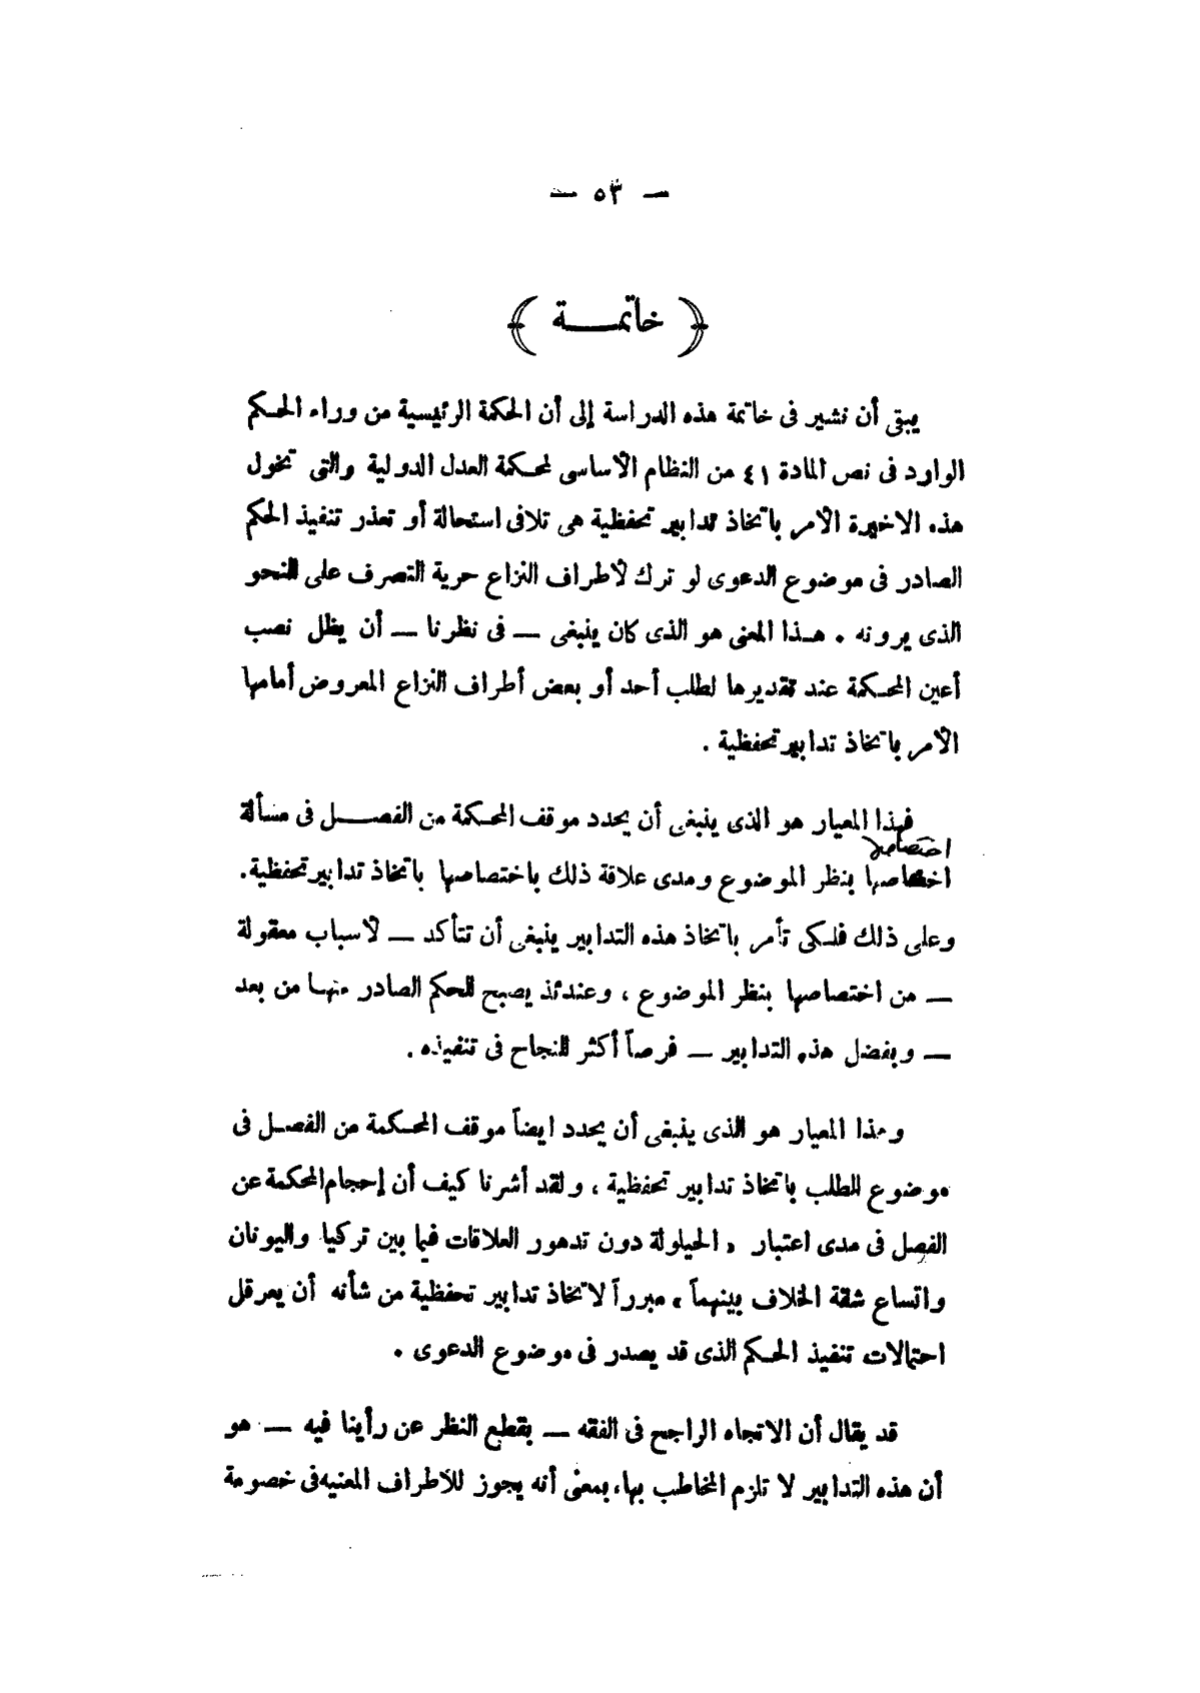 — ٥٣ —
﴿ خاتمـــــة ﴾
يبقى أن نشير فى خاتمة هذه الدراسة إلى أن الحكمة الرئيسية من وراء الحكم
الوارد فى نص المادة ٤١ من النظام الأساسى لمحكمة العدل الدولية والتى تخول
هذه الاخيرة الأمر باتخاذ تدابير تحفظية هى تلافى استحالة أو تعذر تنفيذ الحكم
الصادر فى موضوع الدعوى لو ترك لأطراف النزاع حرية التصرف على النحو
الذى يرونه . هذا المعنى هو الذى كان ينبغى — فى نظرنا — أن يظل نصب
أعين المحكمة عند تقديرها لطلب أحد أو بعض أطراف النزاع المعروض أمامها
الأمر باتخاذ تدابير تحفظية .
فهذا المعيار هو الذى ينبغى أن يحدد موقف المحكمة من الفصل فى مسألة
اختصاصها
اختصاصها بنظر الموضوع ومدى علاقة ذلك باختصاصها باتخاذ تدابير تحفظية.
وعلى ذلك فلكى تأمر باتخاذ هذه التدابير ينبغى أن تتأكد — لأسباب معقولة
— من اختصاصها بنظر الموضوع ، وعندئذ يصبح للحكم الصادر منها من بعد
— وبفضل هذه التدابير — فرصاً أكثر للنجاح فى تنفيذه .
وهذا المعيار هو الذى ينبغى أن يحدد ايضاً موقف المحكمة من الفصل فى
موضوع الطلب باتخاذ تدابير تحفظية ، ولقد أشرنا كيف أن إحجام المحكمة عن
الفصل فى مدى اعتبار « الحيلولة دون تدهور العلاقات فيما بين تركيا واليونان
واتساع شقة الخلاف بينهما » مبرراً لاتخاذ تدابير تحفظية من شأنه أن يعرقل
احتمالات تنفيذ الحكم الذى قد يصدر فى موضوع الدعوى .
قد يقال أن الاتجاه الراجح فى الفقه — بقطع النظر عن رأينا فيه — هو
أن هذه التدابير لا تلزم المخاطب بها، بمعنى أنه يجوز للأطراف المعنيه فى خصومة